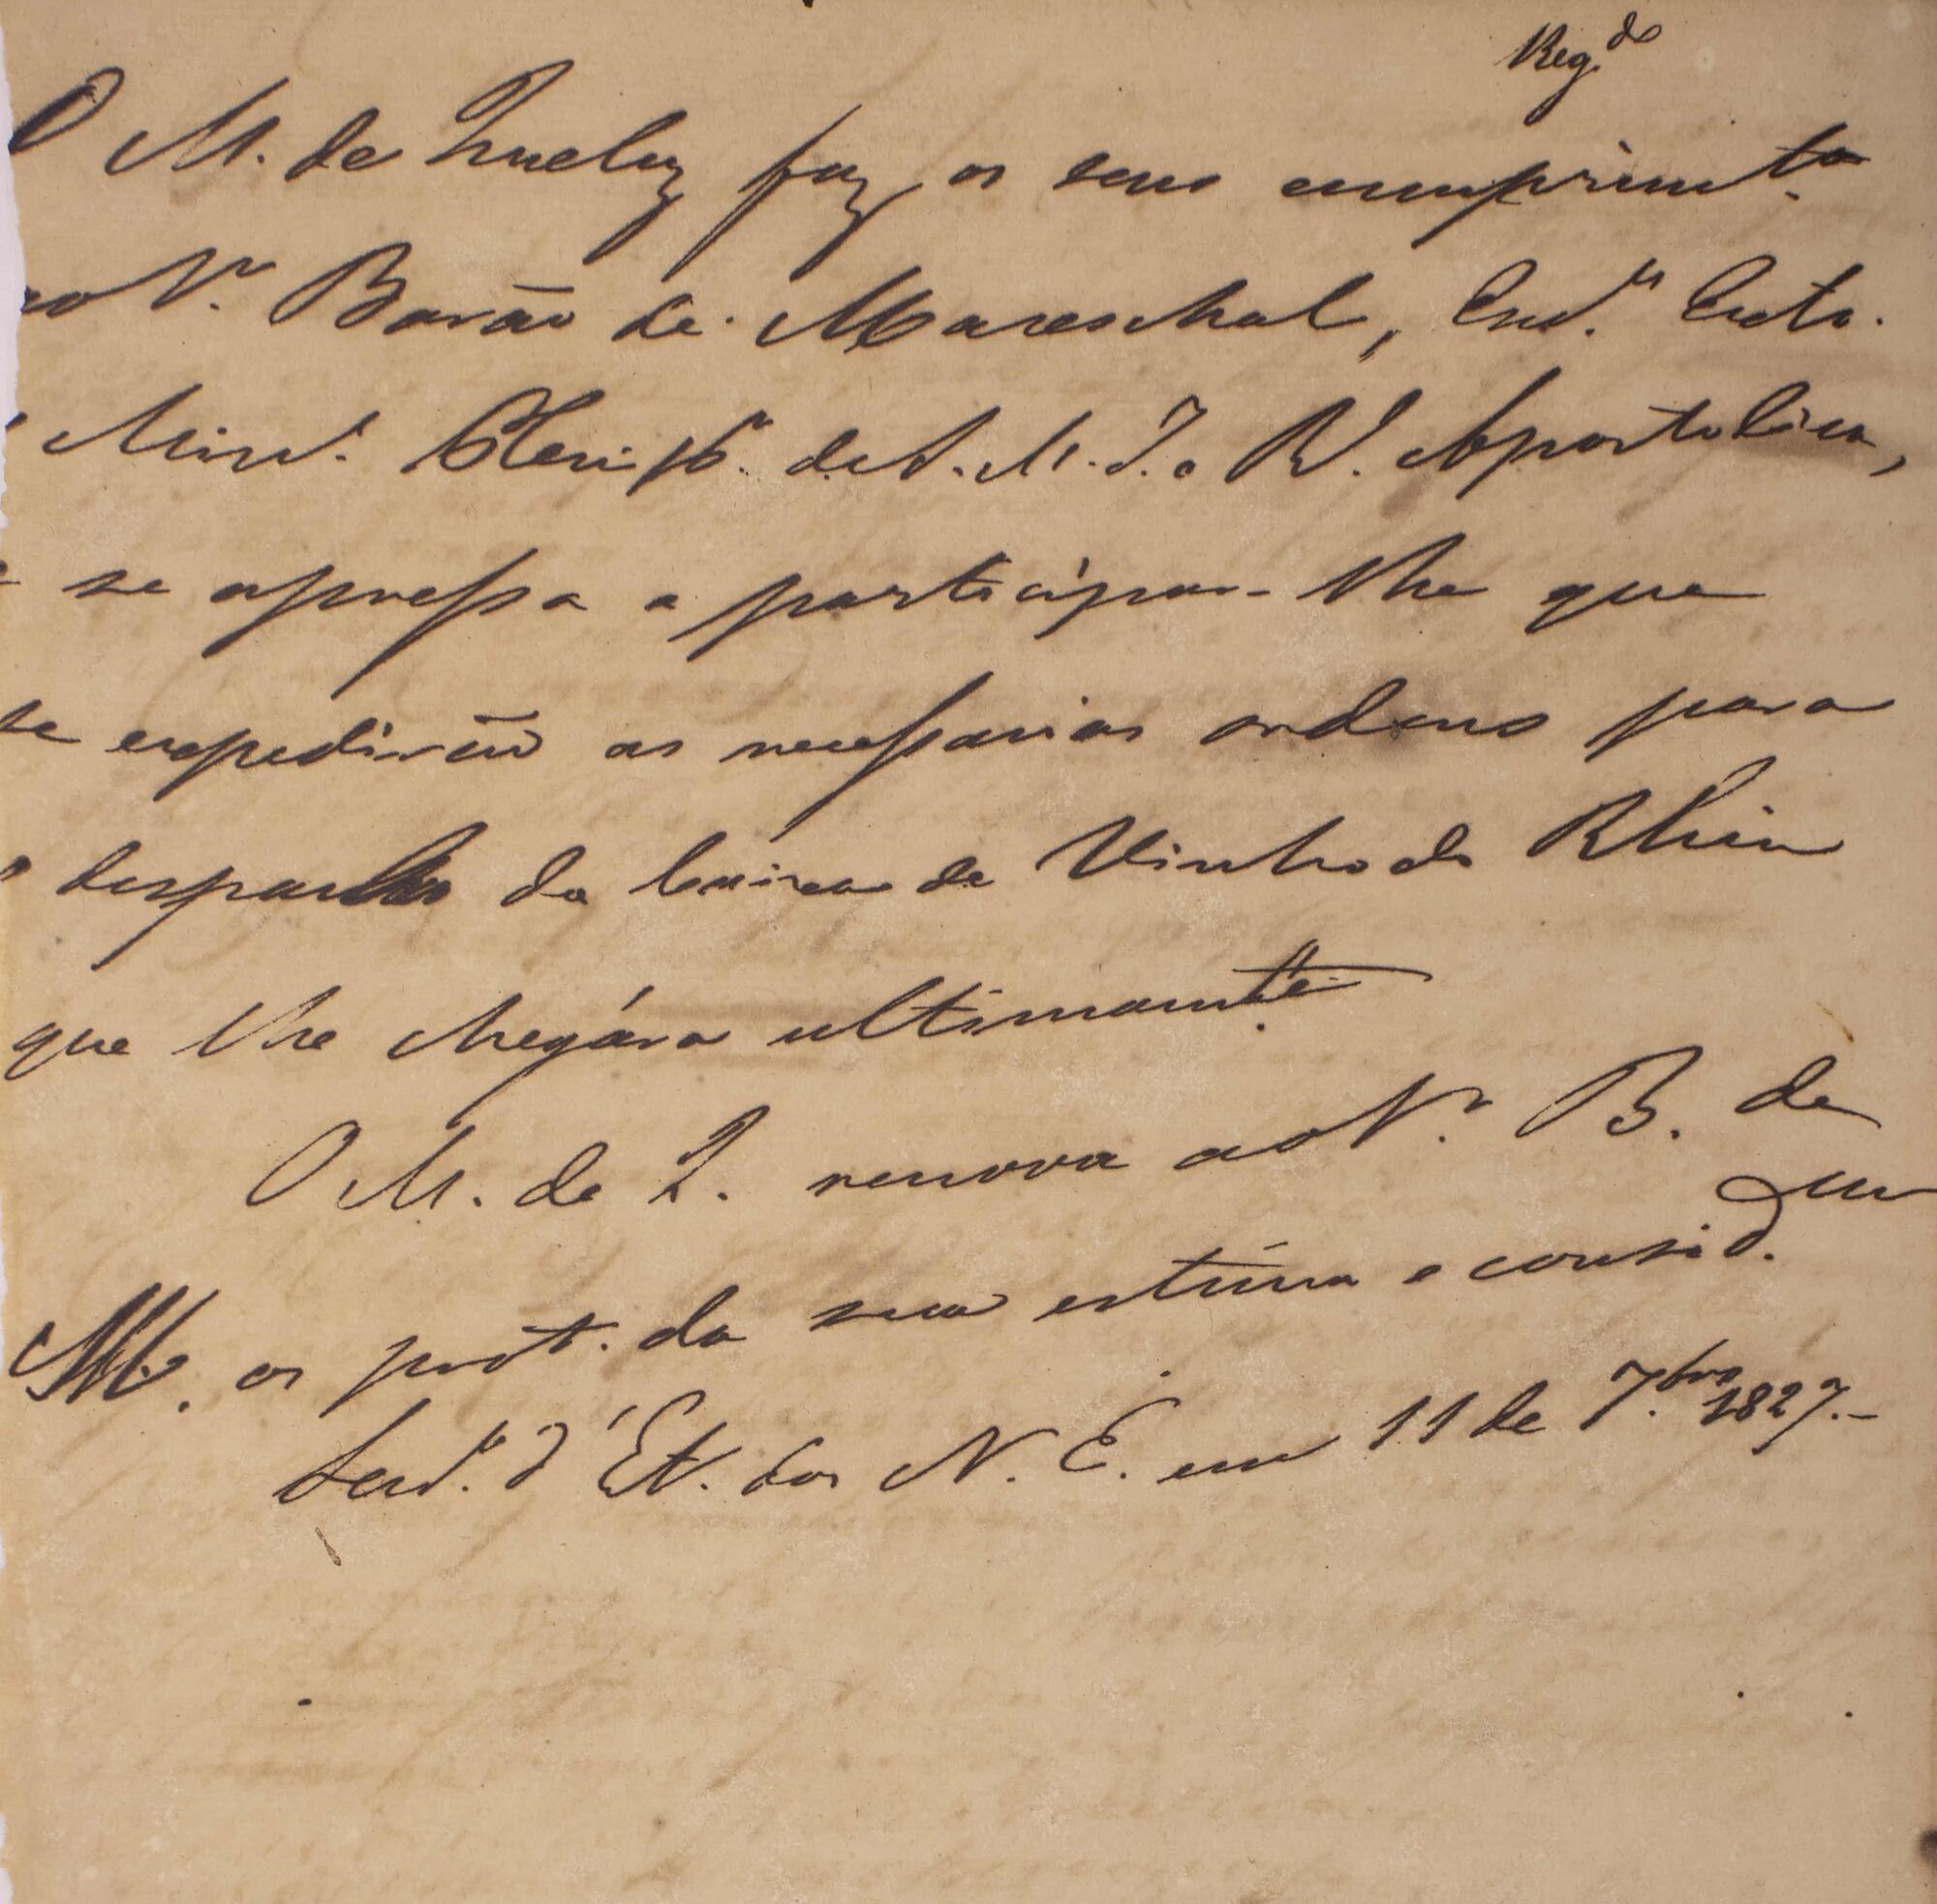 Reg.do
O M. de Queluz faz os seus cumprim.tos
ao S.r Barão de Mareschal, Env.do Extr.
e Min.o Plenip.o de S. M. I. e R. Apostolica,
e se apressa a participar-lhe que
se expedirão as necessarias ordens para
o despacho da caixa de Vinho do Rhin
que lhe chegára ultimam.te
O M. de Q. renova ao S.r B. de
M. os prot. da sua estima e consid.am
Secr.a d'Est. dos N. E. em 11 de 7.bro 1827.-